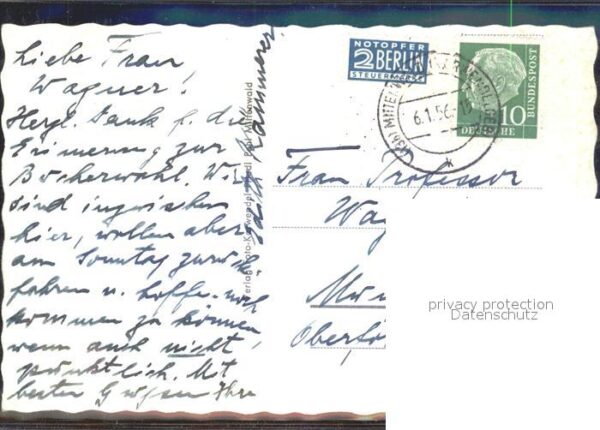 Liebe Frau
Wagner!
Herzl. Dank f. die
Erinnerung zur
Bücherwahl. Wir
sind inzwischen
hier, wollen aber
am Sonntag zurück
fahren u. hoffe noch
kommen zu können,
wenn auch nicht
pünktlich. Mit
besten Grüssen Ihre
Edith Kammerer
Verlag Foto-Karwendel Mittenwald
NOTOPFER
2 BERLIN
STEUERMARKE
(13b) MITTENWALD
6.1.56
10
DEUTSCHE
BUNDESPOST
Frau Professor
Wag
Mün
Oberfö
privacy protection
Datenschutz